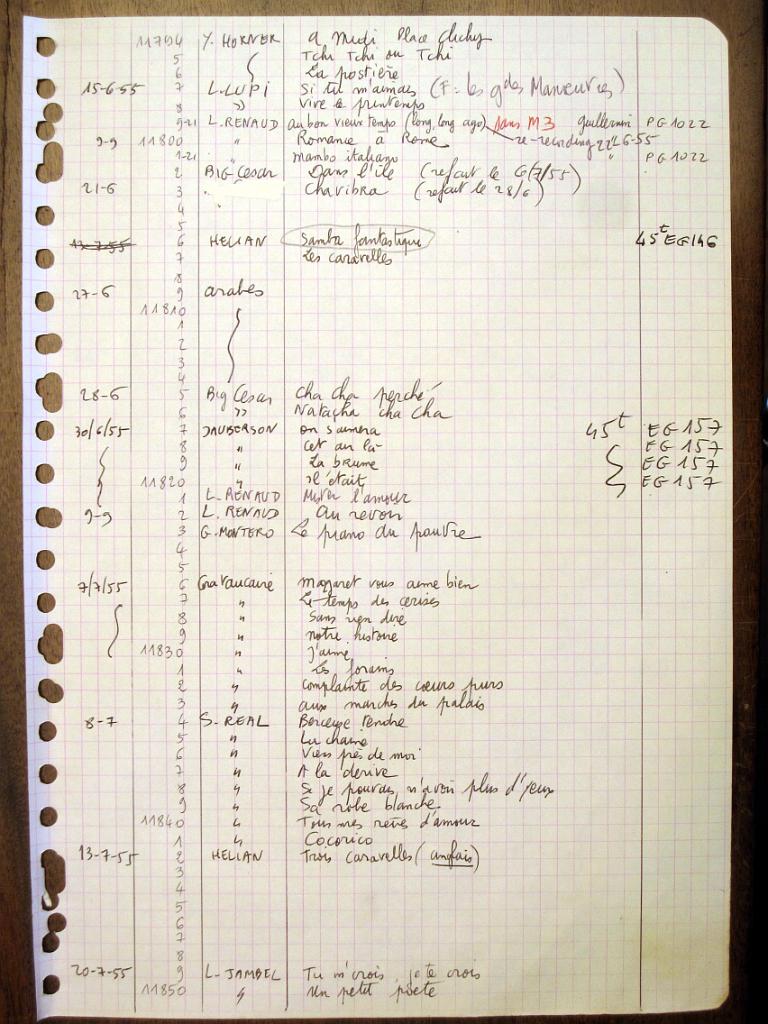 11794 Y. HORNER A Midi Place Clichy
5 Tchi Tchi ou Tchi
6 La postière
15-6-55 7 L. LUPI Si tu m'aimais (F = les gdes Manœuvres)
8 " Vive le printemps
9-21 L. RENAUD au bon vieux temps (long, long ago) sans M3 guillermin PG 1022
9-9 11800 " Romance à Rome re-recording 22/6-55
1-21 " mambo italiano " PG 1022
2 BIG Cesar Dans l'île (refait le 6/7/55)
21-6 3 " Chavibra (refait le 28/6)
4
5
13-7-55 6 HELIAN Samba fantastique 45t EG 146
7 Les caravelles
8
27-6 9 arabes
11810
1
2
3
4
28-6 5 Big Cesar Cha cha perché
6 " Natacha cha cha
30/6/55 7 DAUBERSON on s'aimera 45t EG 157
8 " Cet air là EG 157
9 " La brume EG 157
11820 " Il était EG 157
1 L. RENAUD l'amour
9-9 2 L. RENAUD Au revoir
3 G. MONTERO Le piano du pauvre
4
5
7/7/55 6 Cora Vaucaire Margaret vous aime bien
7 " Le temps des cerises
8 " Sans rien dire
9 " notre histoire
11830 " J'aime
1 " Les forains
2 " Complainte des cœurs purs
3 " aux marches du palais
8-7 4 S. REAL Berceuse tendre
5 " La chaine
6 " Viens près de moi
7 " A la derive
8 " Si je pouvais n'avoir plus d'yeux
9 " Sa robe blanche
11840 " Tous mes rêves d'amour
1 " Cocorico
13-7-55 2 HELIAN Trois caravelles (anglais)
3
4
5
6
7
8
20-7-55 9 L. JAMBEL Tu m'crois, je te crois
11850 " Un petit poète